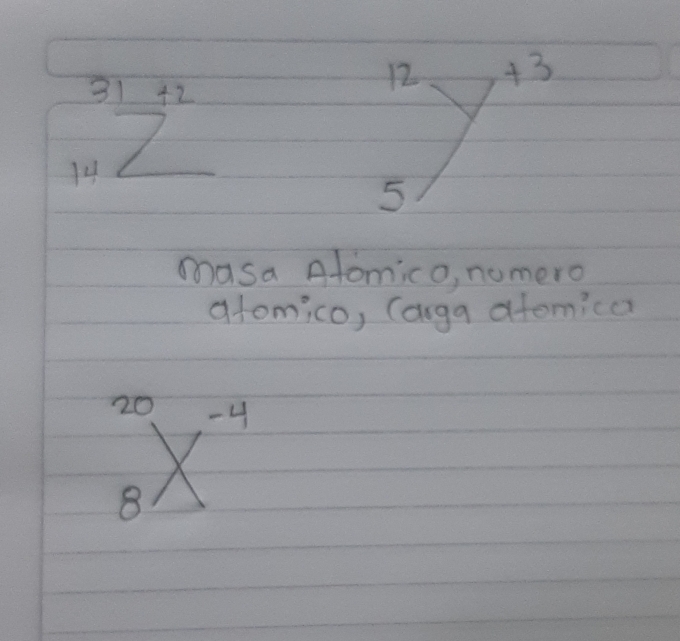 31 +2 12 +3
14 Z 5 y
masa Atómico, numero
atomico, Carga atomica
20 -4
8 X